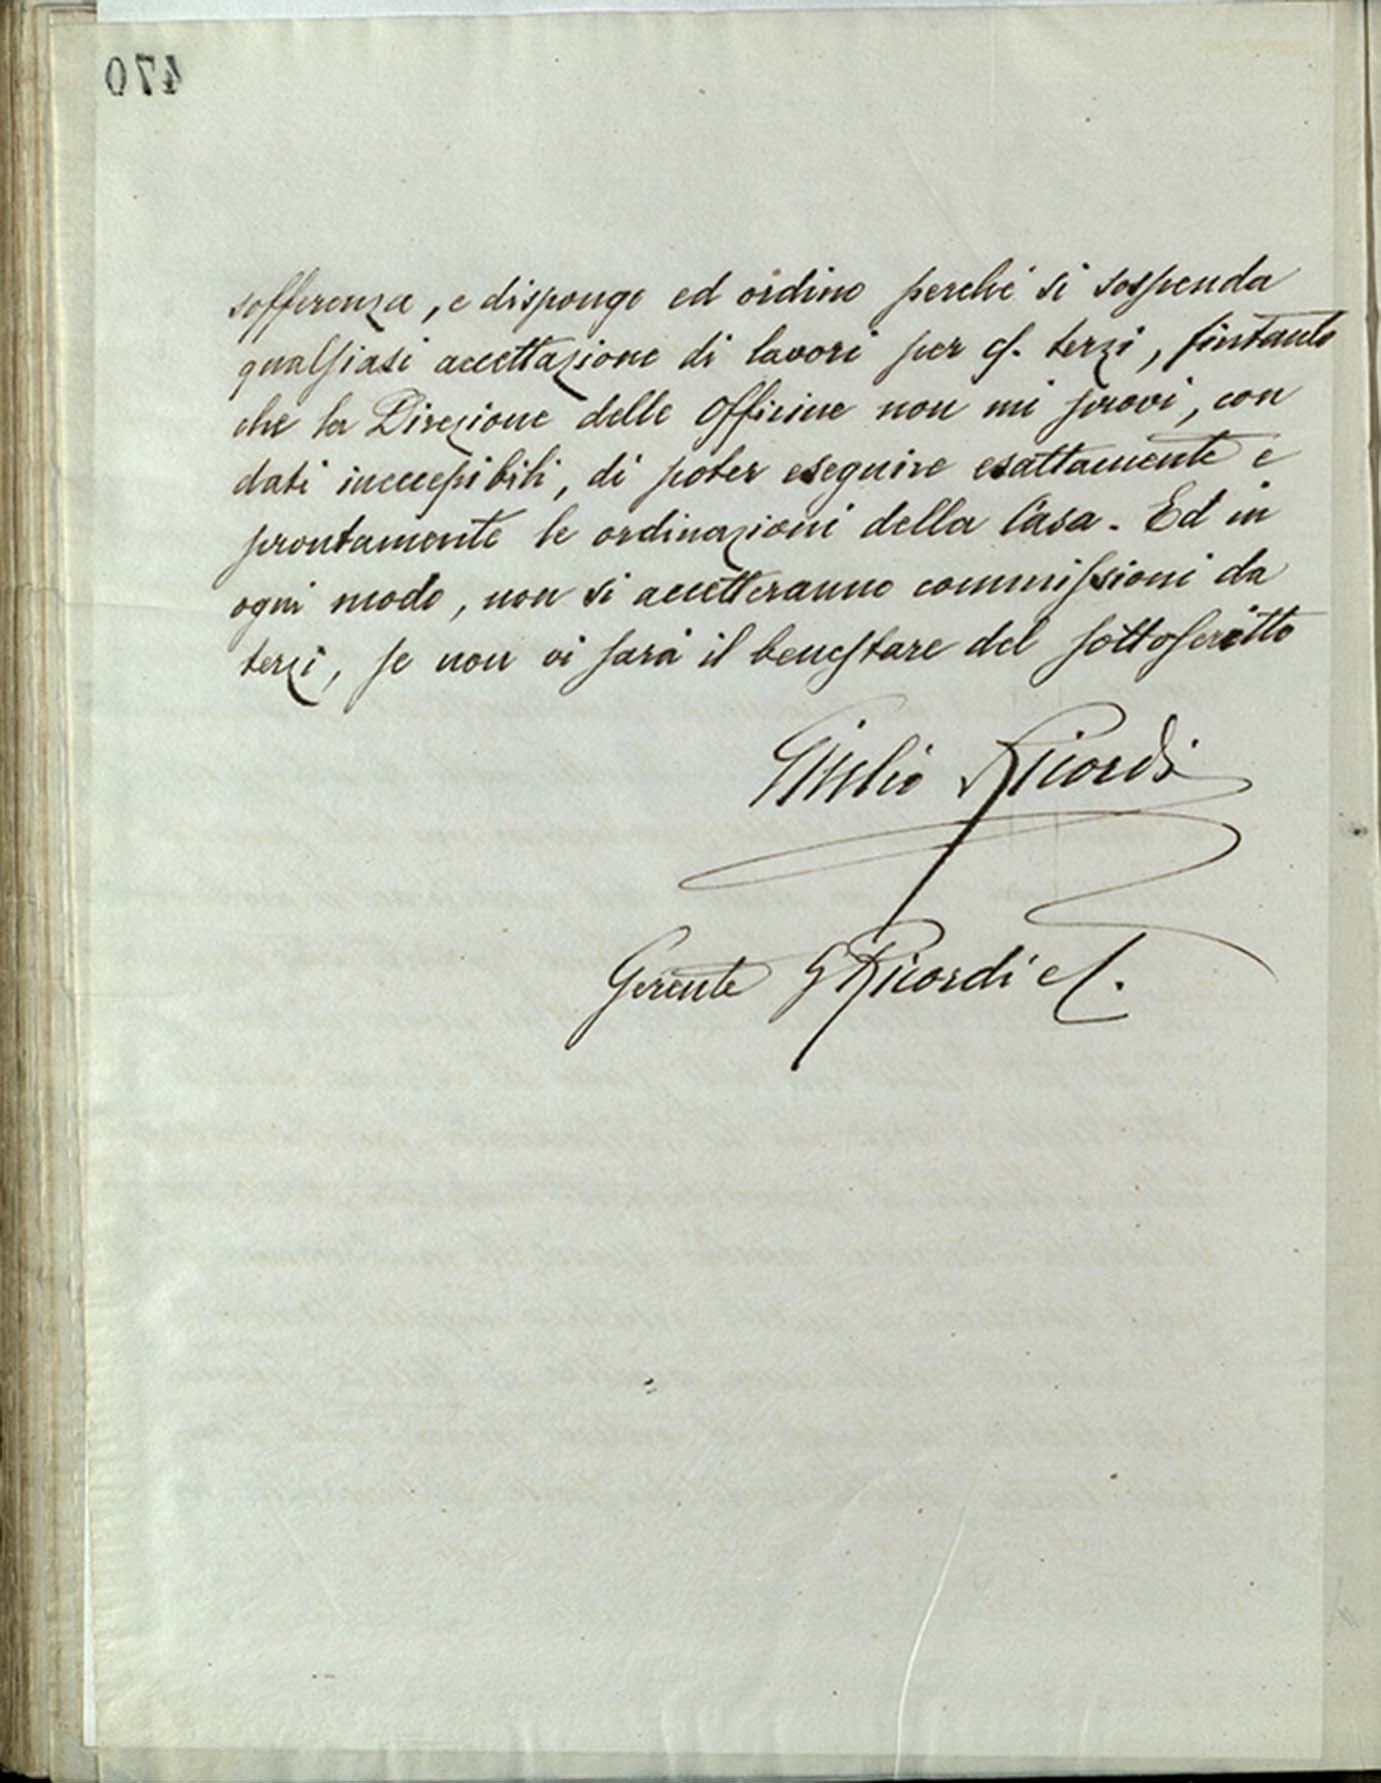 470
sofferenza, e dispongo ed ordino perchè si sospenda
qualsiasi accettazione di lavori per c/. terzi, fintanto
che la Direzione delle Officine non mi provi, con
dati ineccepibili, di poter eseguire esattamente e
prontamente le ordinazioni della Casa. Ed in
ogni modo, non si accetteranno commissioni da
terzi, se non vi sarà il benestare del sottoscritto
Giulio Ricordi
Gerente G Ricordi e C.